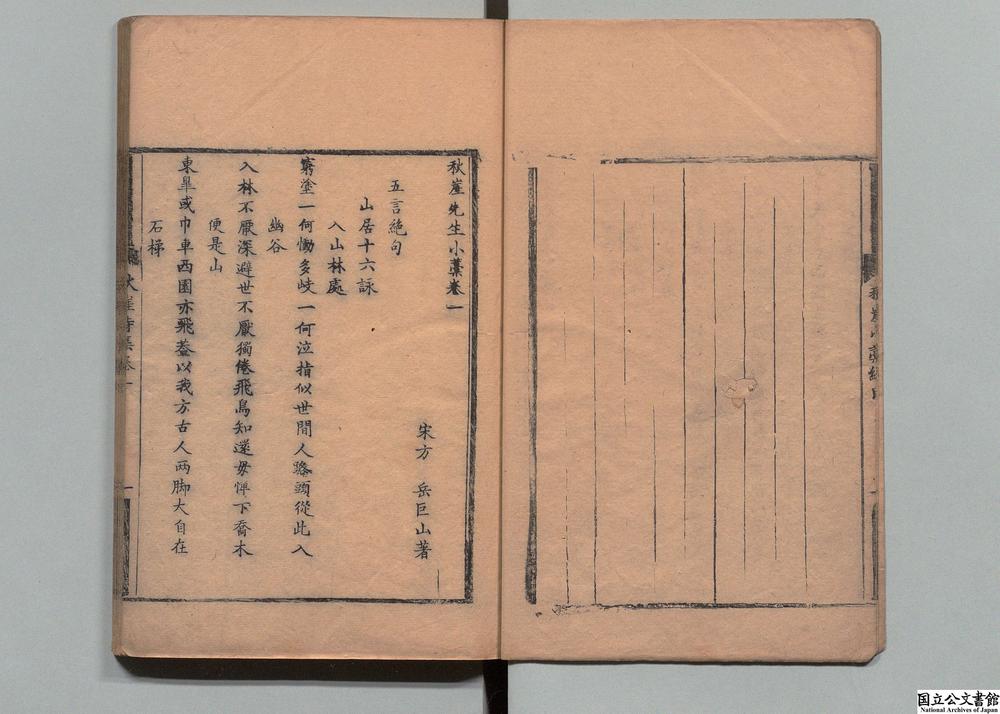 秋崖先生小藁卷一
宋方 岳巨山著
五言絶句
山居十六詠
入山林處
窮塗一何慟多岐一何泣指似世間人路頭從此入
幽谷
入林不厭深避世不厭獨倦飛鳥知還毋憚下喬木
便是山
東臯或巾車西園亦飛蓋以我方古人两脚大自在
石梯
一
国立公文書館
National Archives of Japan